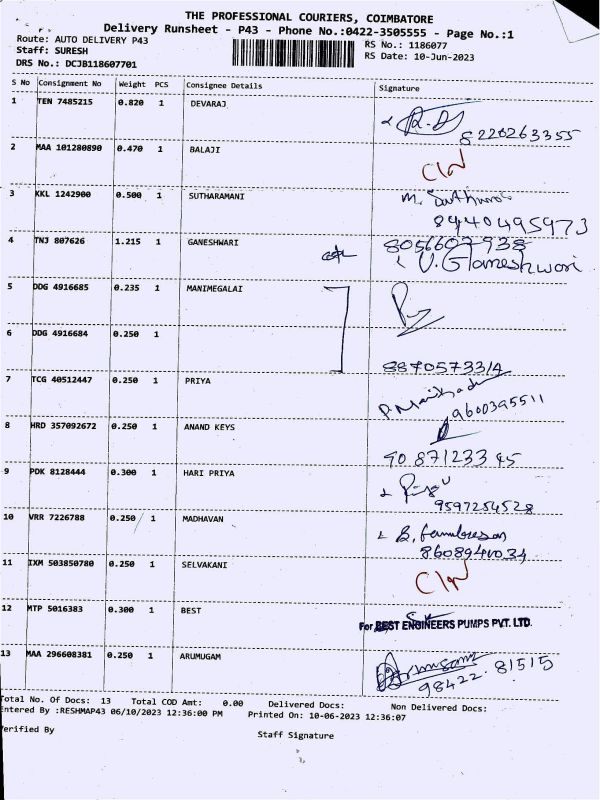 THE PROFESSIONAL COURIERS, COIMBATORE
Delivery Runsheet - P43 - Phone No.:0422-3505555 - Page No.:1
Route: AUTO DELIVERY P43
RS No.: 1186077
Staff: SURESH
RS Date: 10-Jun-2023
DRS No.: DCJB118607701
S No Consignment No Weight PCS Consignee Details Signature
1 TEN 7485215 0.820 1 DEVARAJ
8220263355
2 MAA 101280890 0.470 1 BALAJI
3 KKL 1242900 0.500 1 SUTHARAMANI
8440495973
4 TNJ 807626 1.215 1 GANESHWARI
8056607938
V. Ganeshwari
5 DDG 4916685 0.235 1 MANIMEGALAI
6 DDG 4916684 0.250 1
8870573314
7 TCG 40512447 0.250 1 PRIYA
9600395511
8 HRD 357092672 0.250 1 ANAND KEYS
9087123345
9 PDK 8128444 0.300 1 HARI PRIYA
9597254528
10 VRR 7226788 0.250 1 MADHAVAN
8608940034
11 IXM 503850780 0.250 1 SELVAKANI
12 MTP 5016383 0.300 1 BEST
For BEST ENGINEERS PUMPS PVT. LTD.
13 MAA 296608381 0.250 1 ARUMUGAM
98422 81515
Total No. Of Docs: 13 Total COD Amt: 0.00 Delivered Docs: Non Delivered Docs:
Entered By :RESHMAP43 06/10/2023 12:36:00 PM Printed On: 10-06-2023 12:36:07
Verified By
Staff Signature